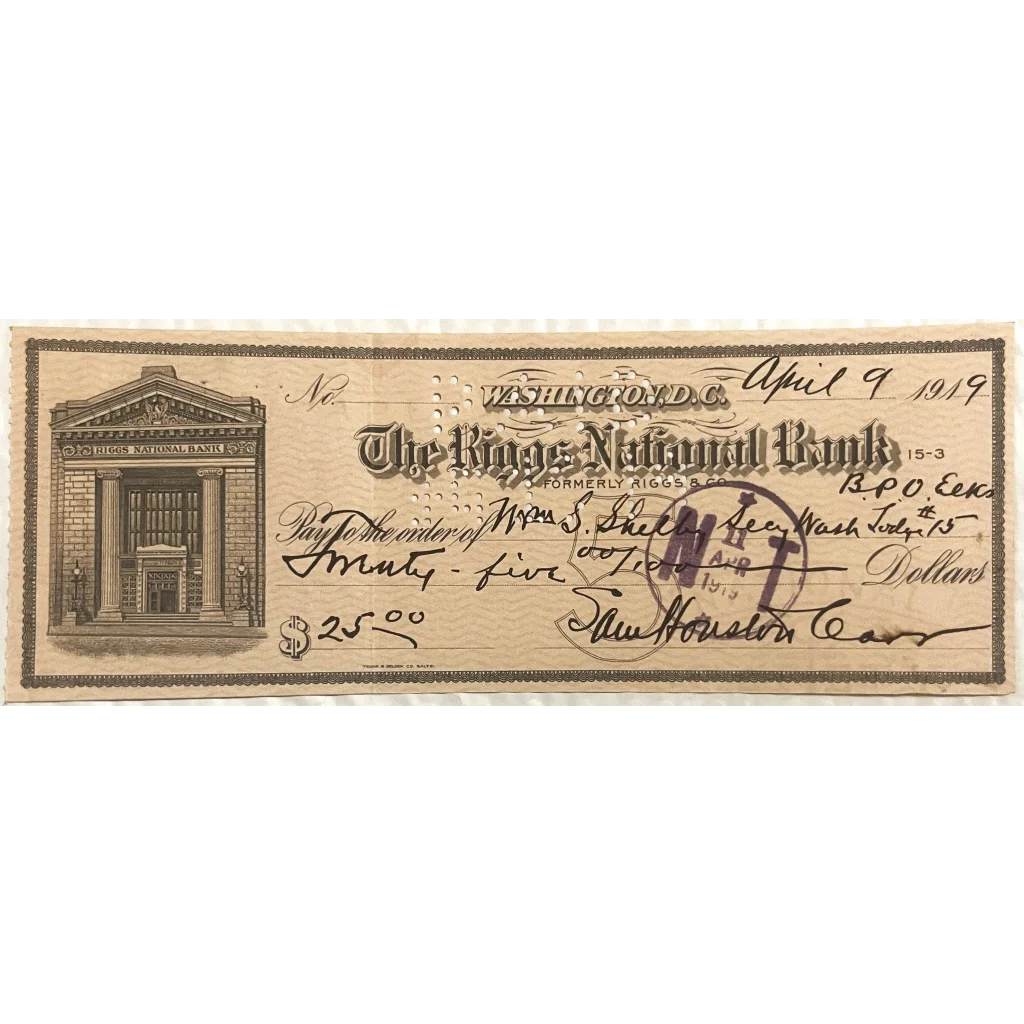 RIGGS NATIONAL BANK
No. WASHINGTON, D.C. April 9 1919
The Riggs National Bank 15-3
FORMERLY RIGGS & CO
B.P.O. Elks
Pay To the order of Wm S. Shelby Secy Wash Lodge # 15
Twenty-five 00/100 Dollars
$ 25.00 Sam Houston
N 11 T
APR
1919
5